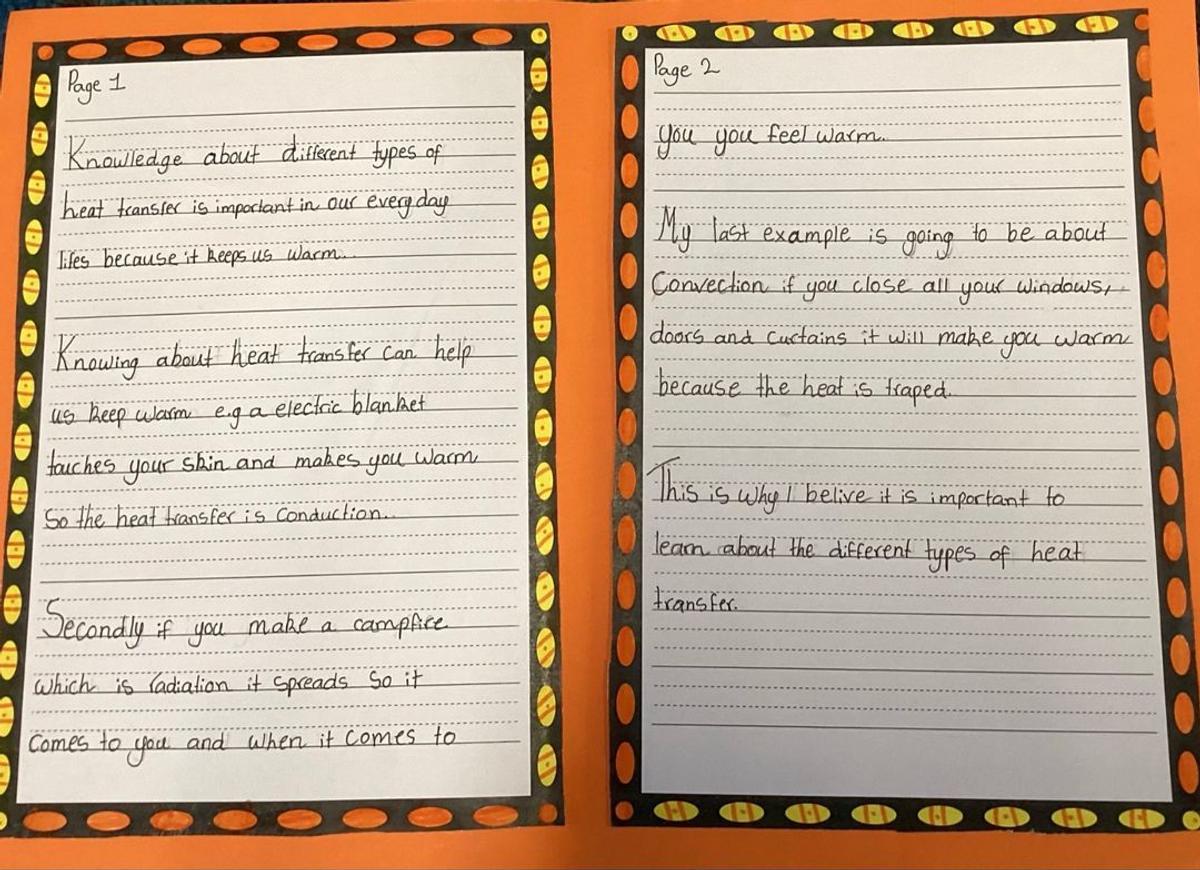 Page 1
Knowledge about different types of
heat transfer is important in our everyday
lifes because it keeps us warm.
Knowing about heat transfer can help
us keep warm e.g a electric blanket
touches your skin and makes you warm
So the heat transfer is Conduction.
Secondly if you make a campfire
which is radiation it spreads So it
Comes to you and when it Comes to
Page 2
you you feel warm.
My last example is going to be about
Convection if you close all your windows,
doors and curtains it will make you warm
because the heat is traped.
This is why I belive it is important to
learn about the different types of heat
transfer.